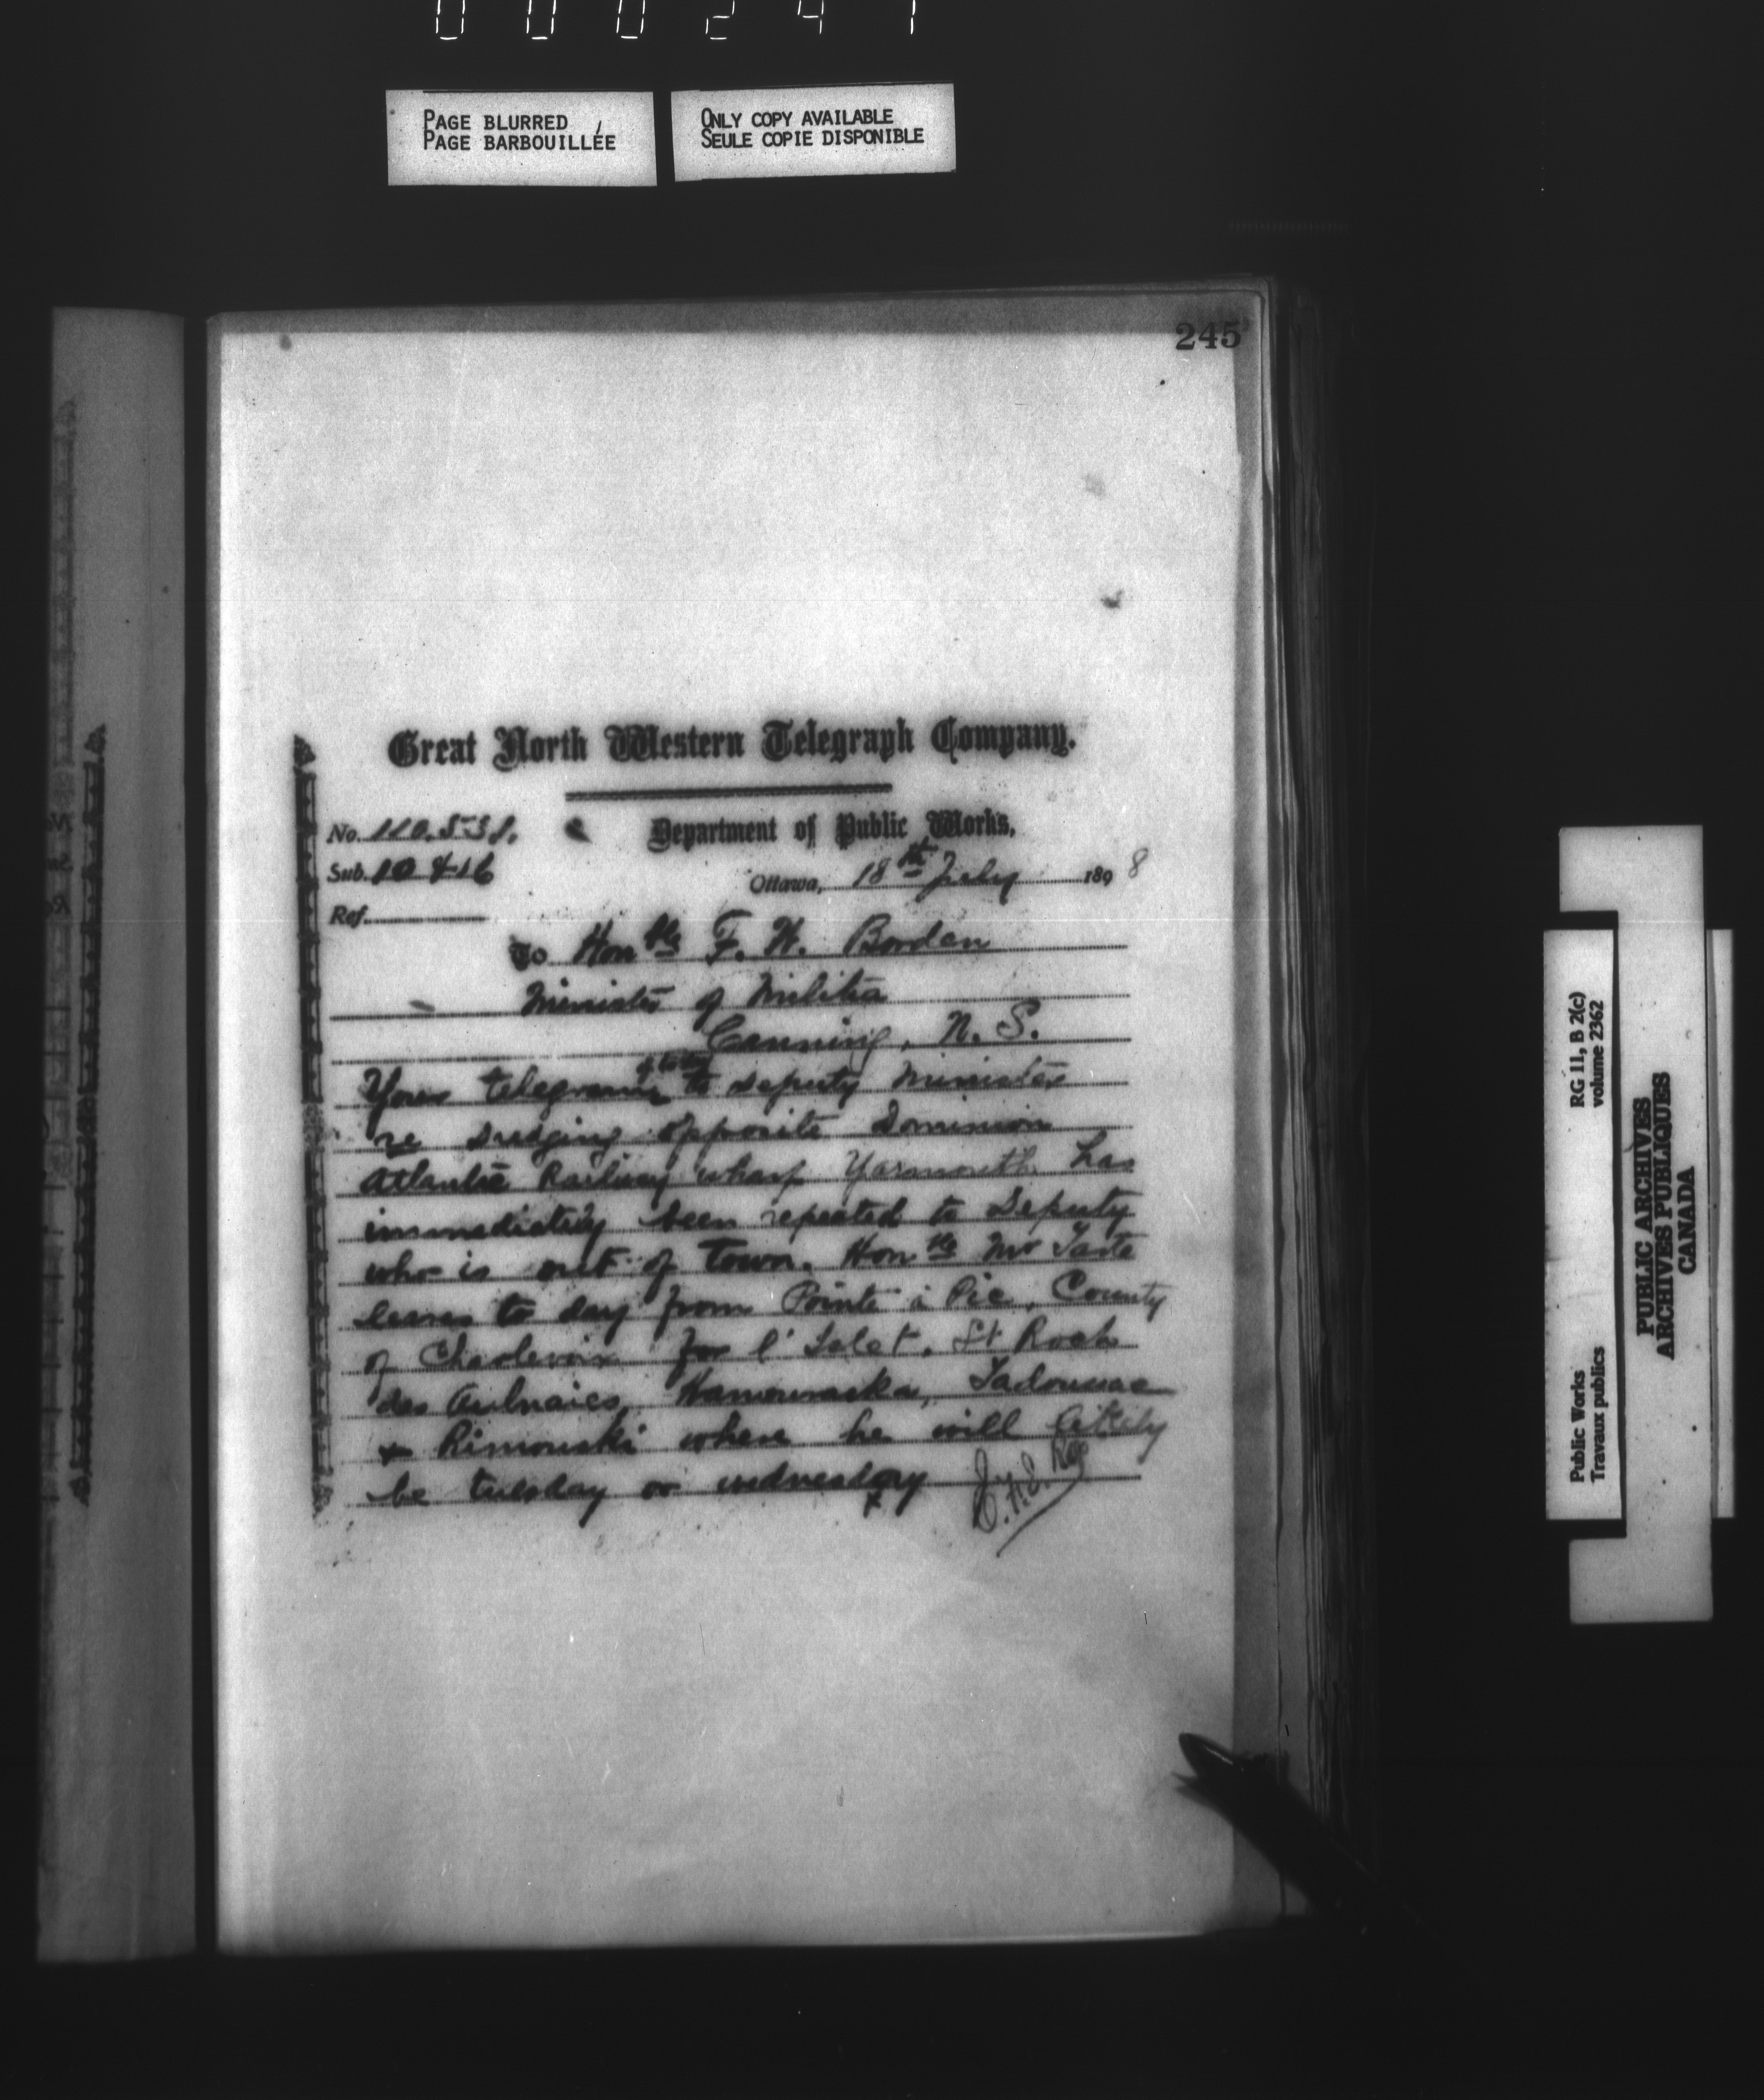 000247
PAGE BLURRED
PAGE BARBOUILLÉE
ONLY COPY AVAILABLE
SEULE COPIE DISPONIBLE
245
Great North Western Telegraph Company.
No. 110.538.
Department of Public Works,
Sub. 10416
Ottawa, 18th July 1898
Ref.
To Honble F. W. Borden
Minister of Militia
Canning, N. S.
Your telegram to deputy Minister
re dredging opposite Dominion
Atlantic Railway wharf Yarmouth has
immediately been repeated to Deputy
who is out of town. Honble Mr Tarte
leaves to day from Pointe à Pic, County
of Charlevoix for l'Islet, St Roch
des Aulnaies, Kamouraska, Tadoussac
& Rimouski where he will likely
be tuesday or wednesday
RG 11, B 2(c)
volume 2362
Public Works
Travaux publics
PUBLIC ARCHIVES
ARCHIVES PUBLIQUES
CANADA